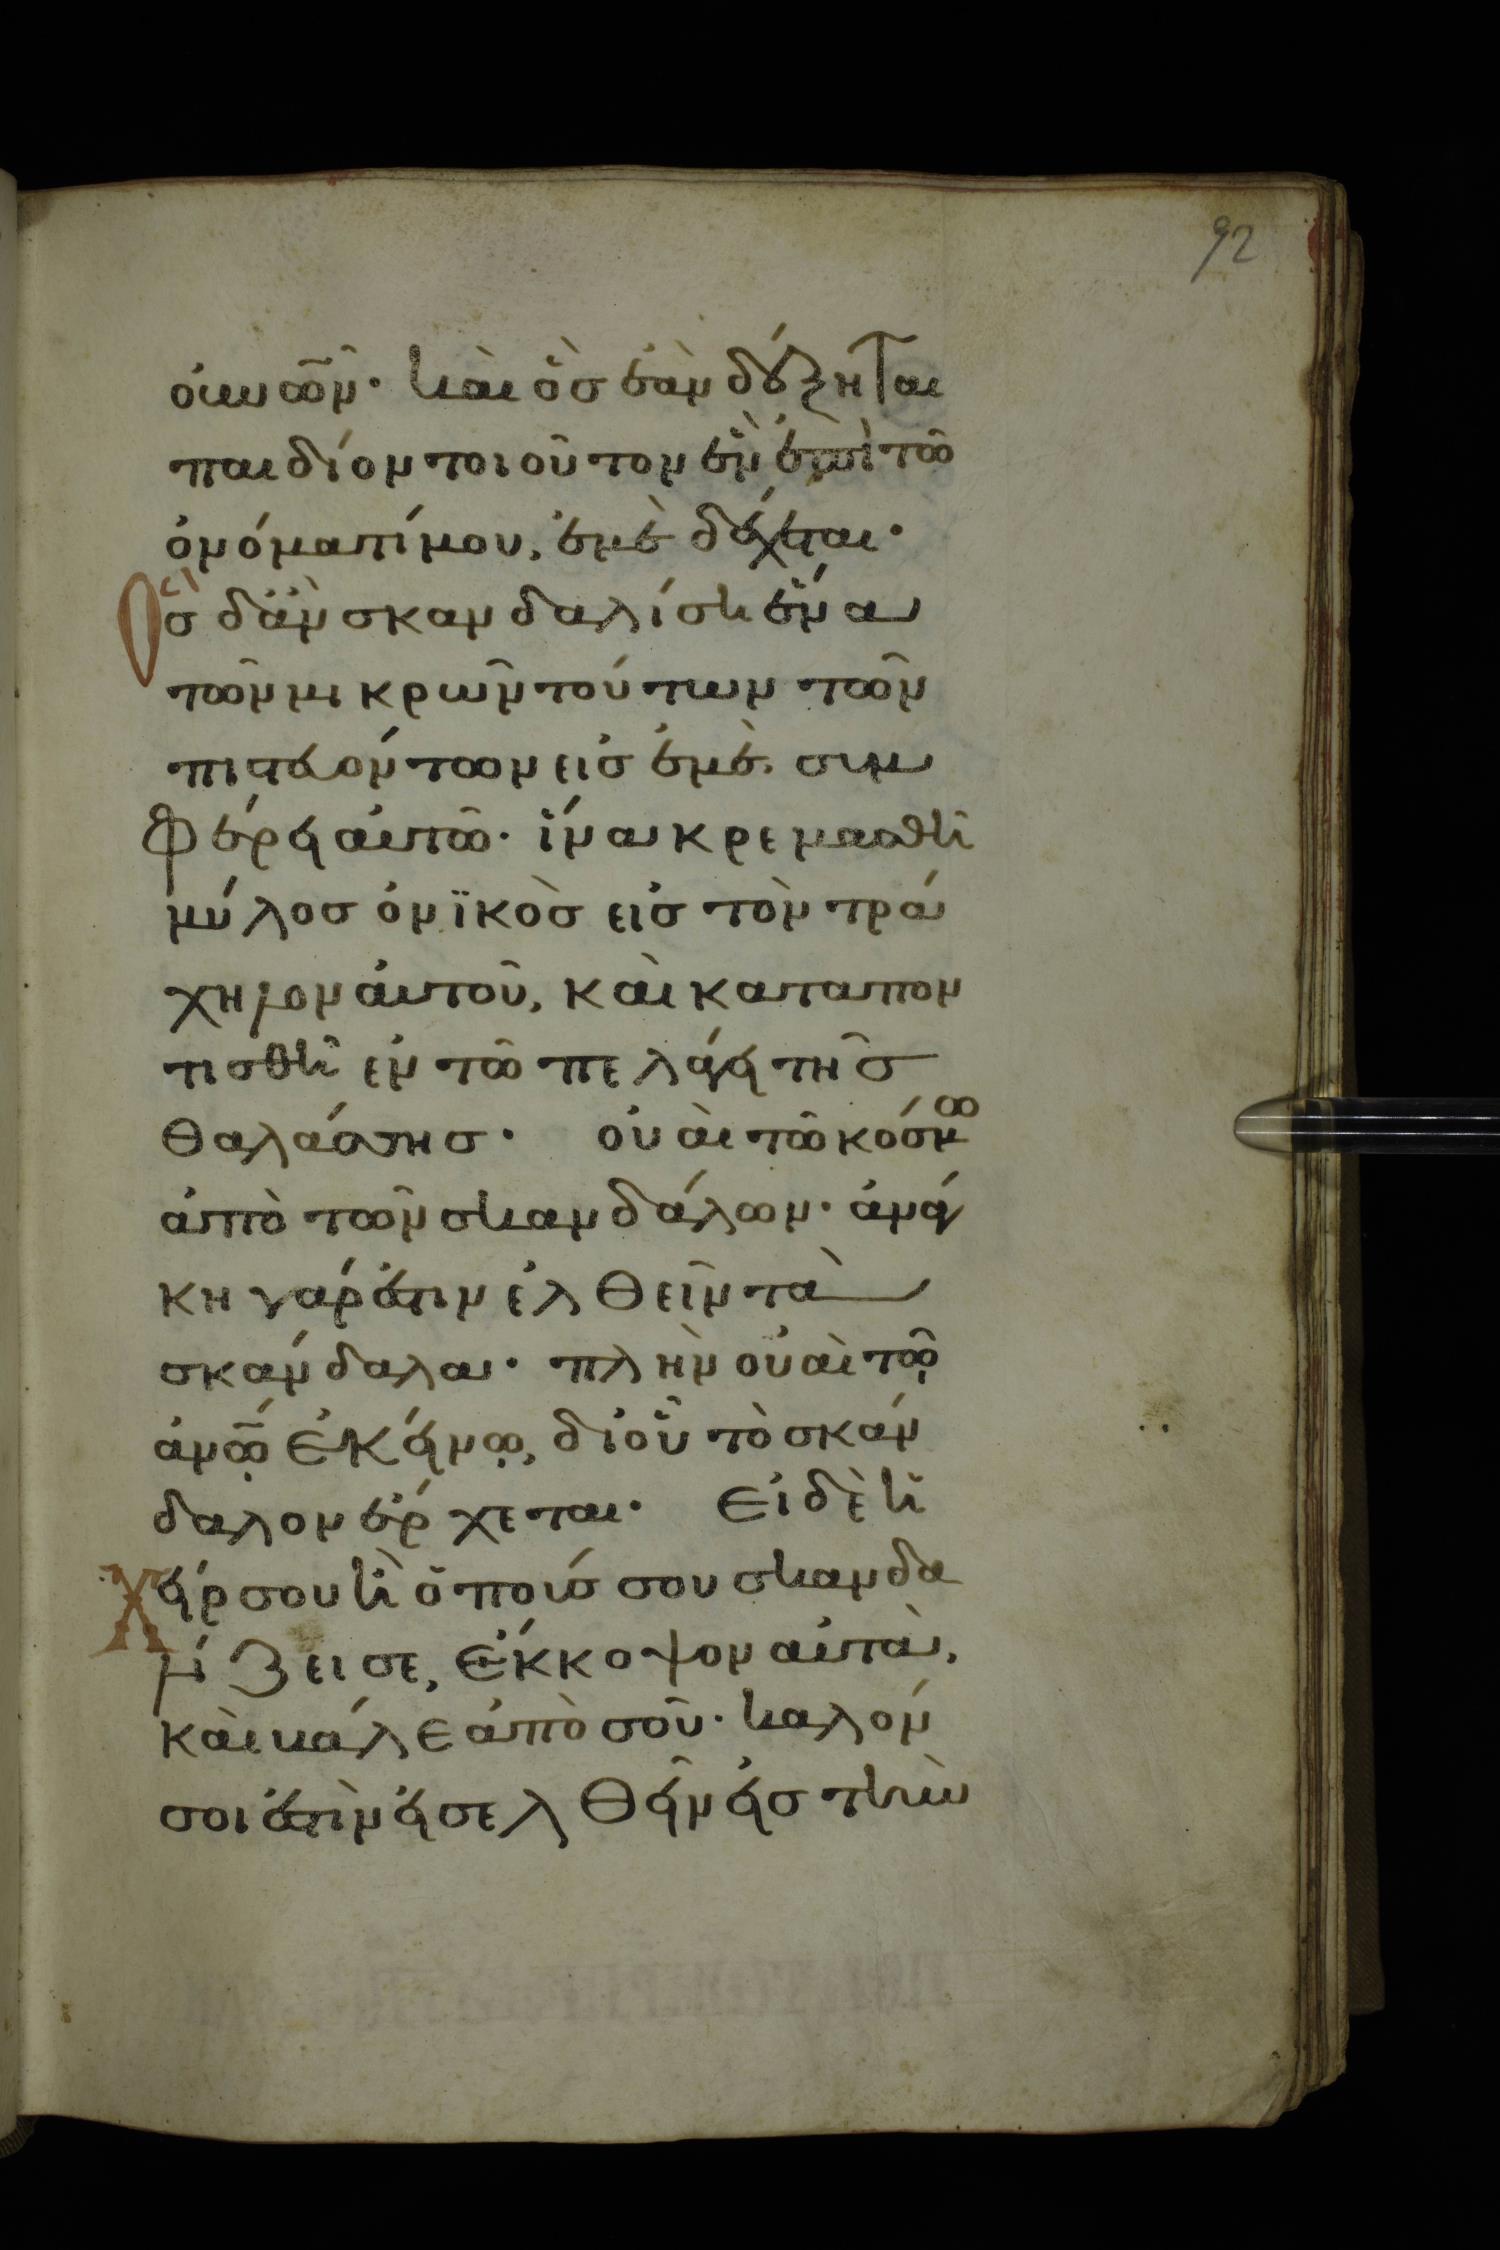 92
ὀυνῶν· καὶ ὃσ ἐὰν δέξηται
παιδίον τοιοῦτον ἓν ἐπὶ τῶ
ὀνόματί μου, ἐμὲ δέχεται·
Ὃσ δἂν σκανδαλίση ἕνα
τῶν μικρῶν τούτων τῶν
πιστευόντων εἰσ ἐμὲ, συμ
φέρει αὐτῶ· ἵνα κρεμασθῆ
μύλοσ ὀνϊκὸσ εἰσ τὸν τρά
χηλον ἀυτοῦ, καὶ καταπον
τισθῆ ἐν τῶ πελάγει τῆσ
θαλάσσησ· οὐαὶ τῶ κόσμω
ἀπὸ τῶν σκανδάλων· ἀνάγ
κη γάρ ἐστιν ἐλθεῖν τὰ
σκάνδαλα· πλὴν οὐαὶ τῶ
ἀνω̅ ἐκείνω, δι οὗ τὸ σκάν
δαλον ἔρχεται· Εἰ δὲ ἡ
Χείρ σου ἢ ὁ ποὺσ σου σκανδα
λίζει σε, ἔκκοψον αὐτὰ,
καὶ βάλε ἀπὸ σοῦ· καλόν
σοι ἐστὶν εἰσελθεῖν εἰσ τὴν